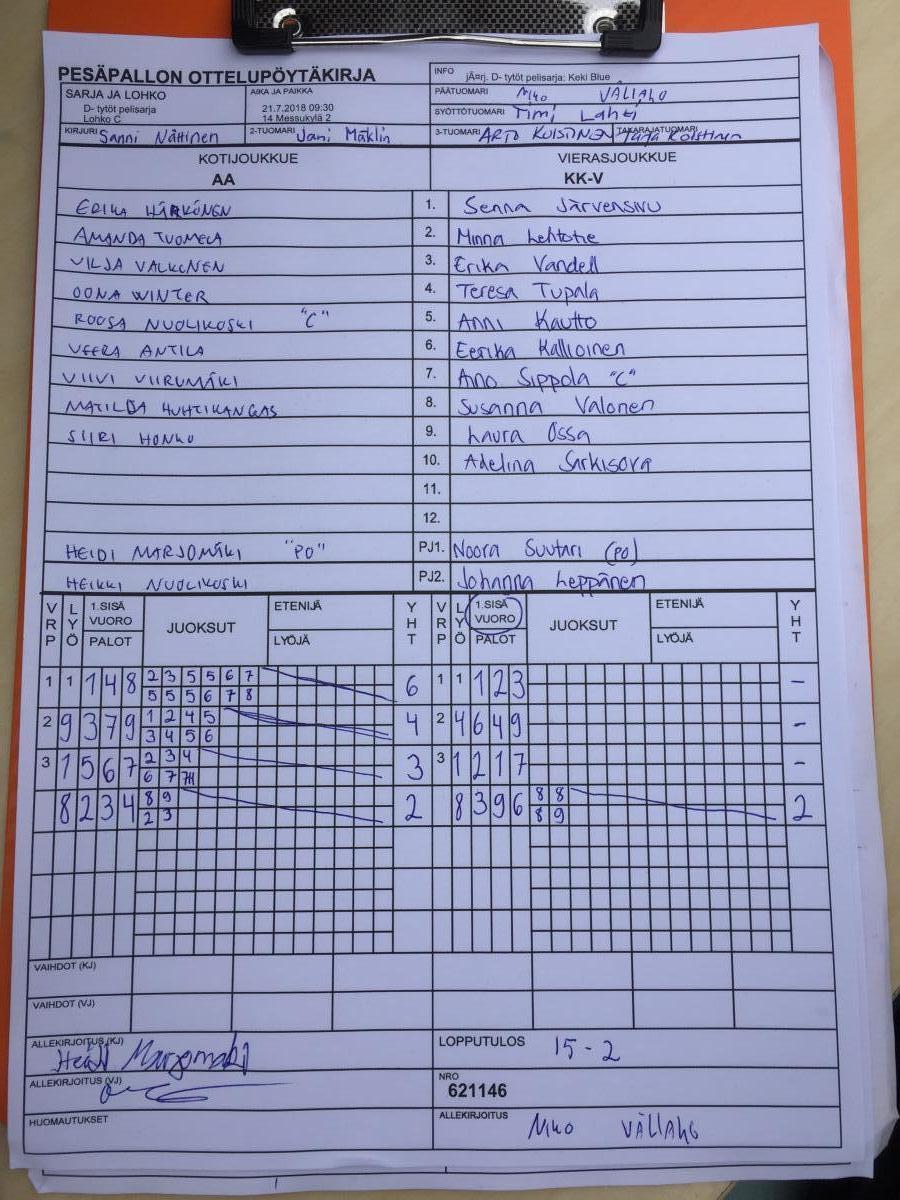 PESÄPALLON OTTELUPÖYTÄKIRJA
INFO jÃ¤rj. D- tytöt pelisarja: Keki Blue
SARJA JA LOHKO
D- tytöt pelisarja
Lohko C
AIKA JA PAIKKA
21.7.2018 09:30
14 Messukylä 2
PÄÄTUOMARI Niko VÄLLAHO
SYÖTTÖTUOMARI Timi Lahti
KIRJURI Sanni Nättinen 2-TUOMARI Jani Mäklin 3-TUOMARI ARTO KOISTINEN TAKARAJATUOMARI Koistinen
KOTIJOUKKUE VIERASJOUKKUE
AA KK-V
ERIKA HÄRKÖNEN 1. Senna Järvensivu
AMANDA TUOMELA 2. Minna Lehtotie
VILJA VALKONEN 3. Erika Vandell
OONA WINTER 4. Teresa Tupala
ROOSA NUOLIKOSKI "C" 5. Anni Kautto
VEERA ANTILA 6. Eerika Kallioinen
VIIVI VIIRUMÄKI 7. Aino Sippola "C"
MATILDA HUHTIKANGAS 8. Susanna Valonen
SIIRI HONKO 9. Laura Ossa
10. Adelina Sarkisova
11.
12.
HEIDI MARJOMÄKI "PO" PJ1. Noora Suutari (PO)
HEIKKI NUOLIKOSKI PJ2. Johanna Leppänen
VRP LYÖ 1.SISÄ VUORO PALOT JUOKSUT ETENIJÄ LYÖJÄ YHT VRP LYÖ 1.SISÄ VUORO PALOT JUOKSUT ETENIJÄ LYÖJÄ YHT
1 1 1 4 8 2 3 5 5 6 7 6 1 1 1 2 3 -
5 5 5 6 7 8
2 9 3 7 9 1 2 4 5 4 2 4 6 4 9 -
3 4 5 6
3 1 5 6 7 2 3 4 3 3 1 2 1 7 -
6 7 7
8 2 3 4 8 9 2 8 3 9 6 8 8 2
2 3 8 9
VAIHDOT (KJ)
VAIHDOT (VJ)
ALLEKIRJOITUS (KJ) Heidi Marjomäki LOPPUTULOS 15-2
ALLEKIRJOITUS (VJ) NRO
621146
HUOMAUTUKSET ALLEKIRJOITUS Niko VÄLLAHO